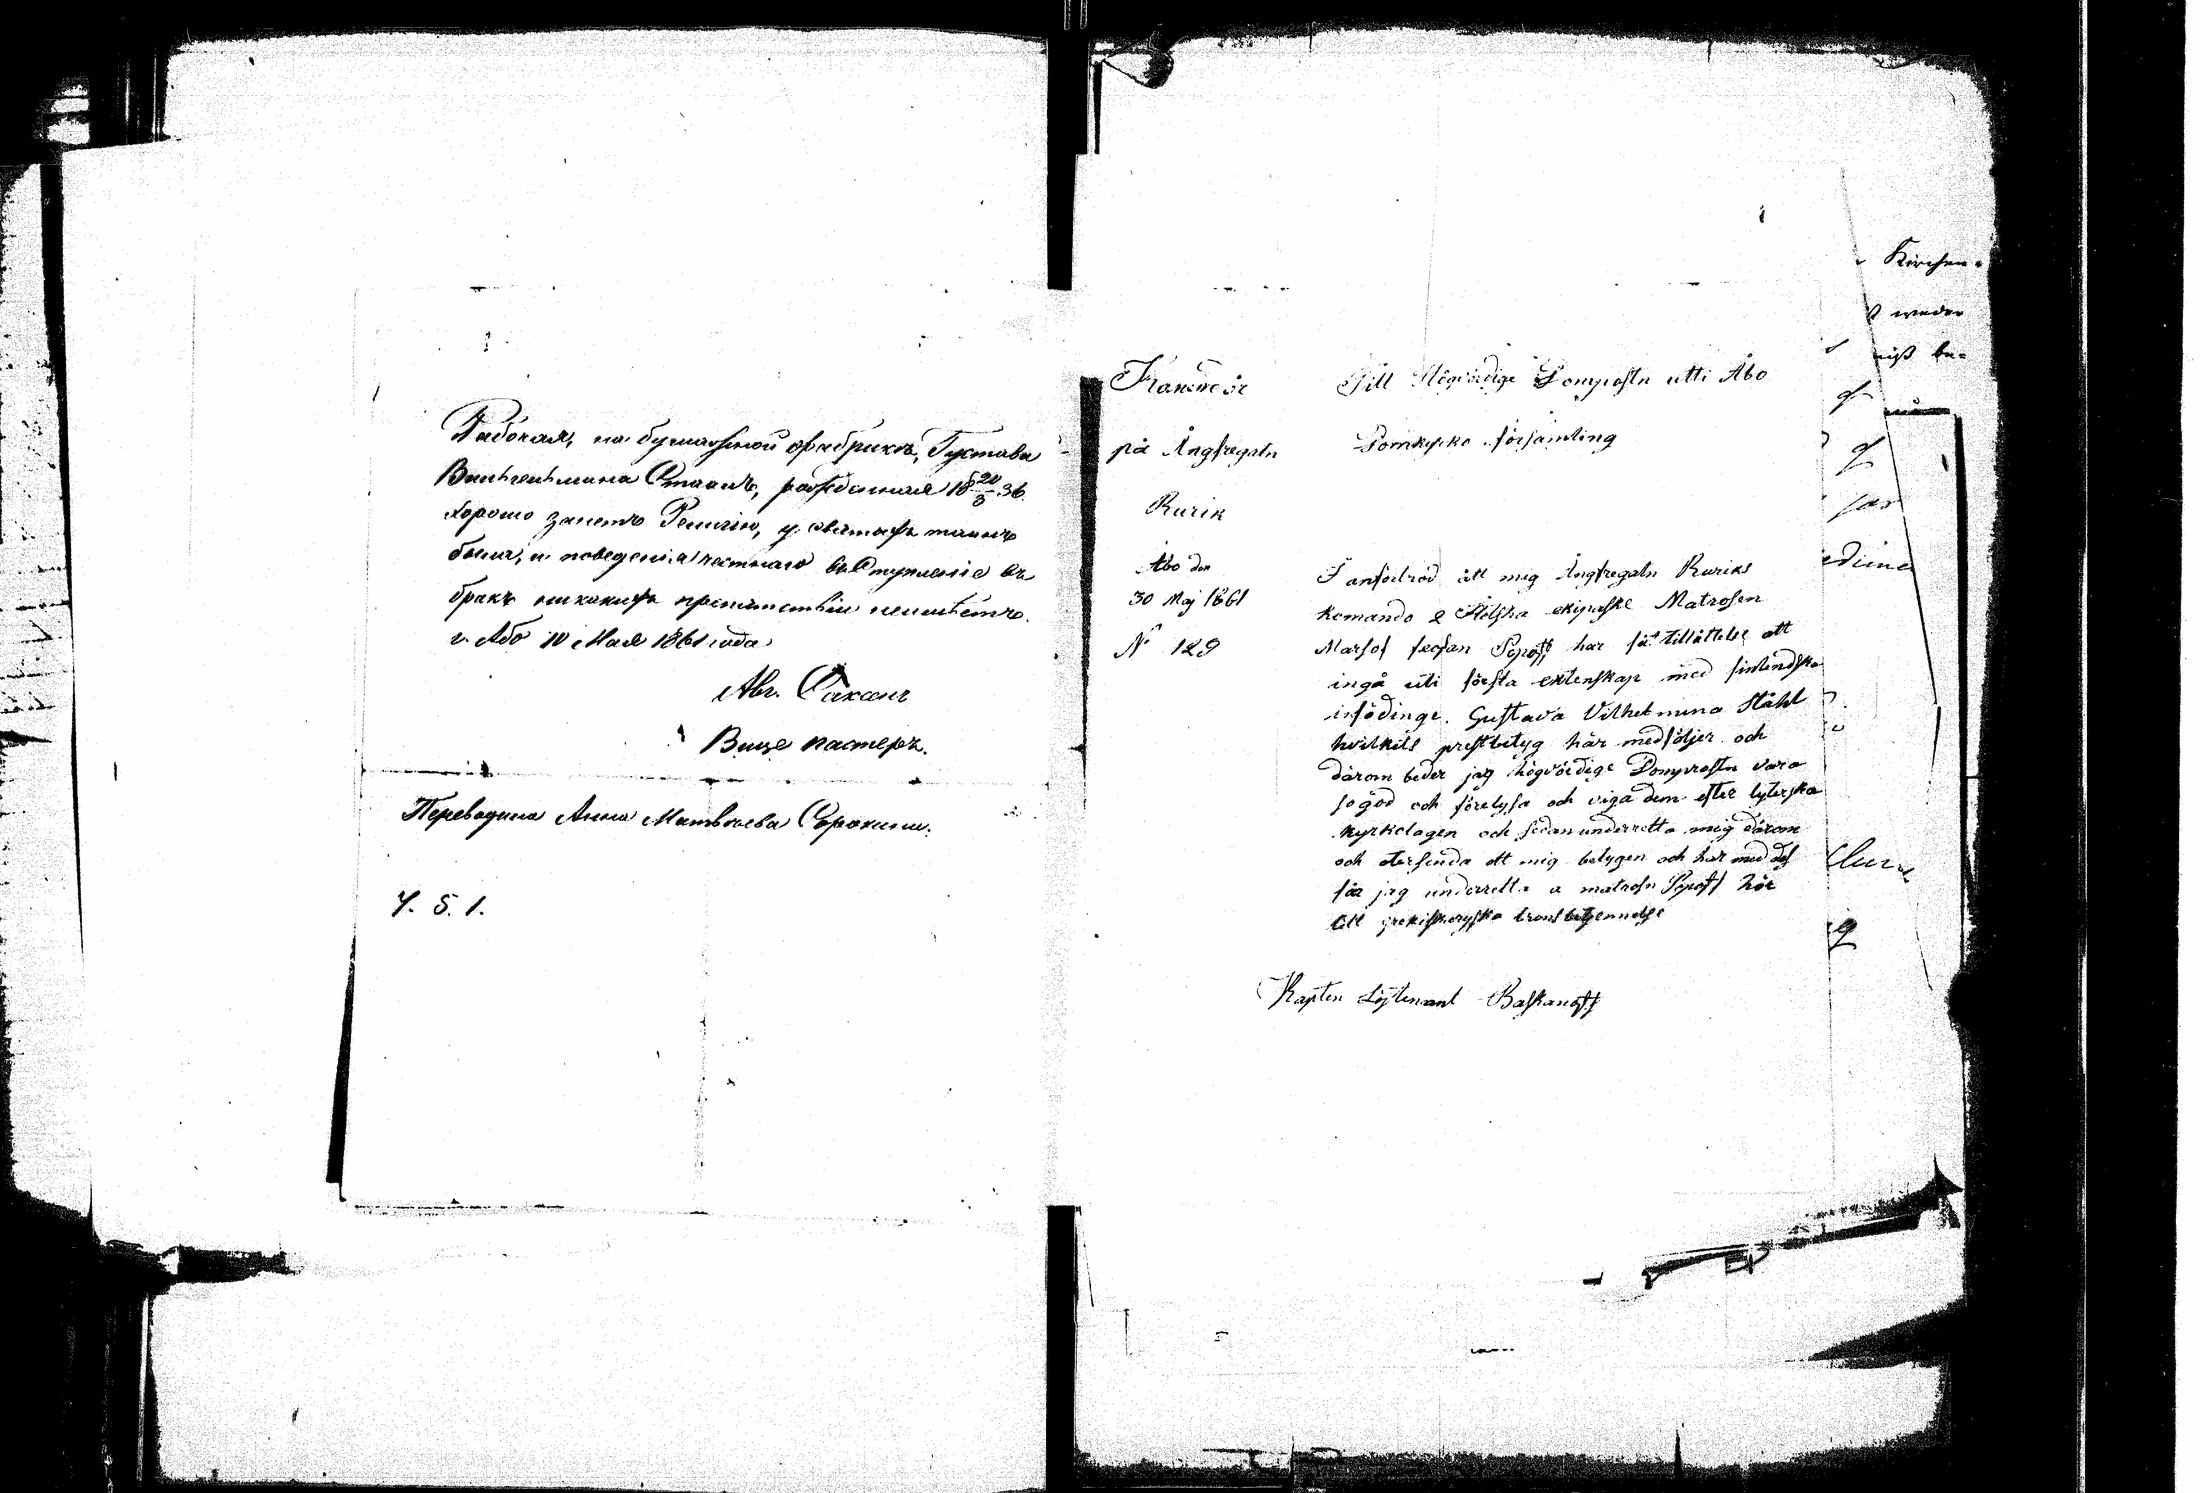 Рабочая, на бумажной фабрикѣ, Густава
Вильгельмина Стааль, рожденная 18 20/3 36.
Хорошо знаетъ Религію, у святыхъ таинъ
была, и поведенія честнаго въ Ступленіе въ
бракъ никакихъ препятствій неимѣетъ.
г. Або 10 Мая 1861 года
Авг.
Вице пастеръ.
Переводила Анна Матвѣева Сорокини.
4. 5. 1.
på Ångfregatn
Rurik
Åbo den
30 Maj 1861
No 129
Till Högvördige Domprostn utti Åbo
Domkyrko församling
I anförtrod ått mig Ångfregatn Ruriks
Komando ekipaske Matrosen
Marsof fecfan Popoff har fåt tillåttelse att
ingå uti första ektenskap med finlendska
infödinge. Gustava Vilhelmina Ståhl
hvilkits prestbetyg här medföljer och
därom beder jag högvördige Domprostn vara
so god och förelysa och viga dem efter lyterska
kyrkolagen och sedan underretta mig därom
och otersenda ott mig betygen och har med des
får jag underretta a matrosn Popoff hör
till grekiskaryska tronsbetjennelse
Kapten Löjtenant Baskanoff
Kirchen-
weder
niß be-